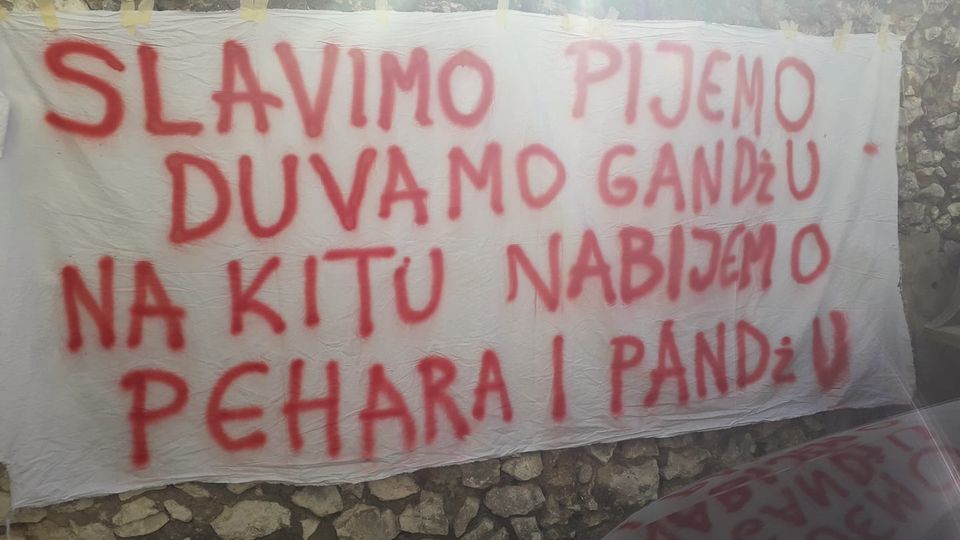 SLAVIMO PIJEMO
DUVAMO GANDŽU
NA KITU NABIJEMO
PEHARA I PANDŽU